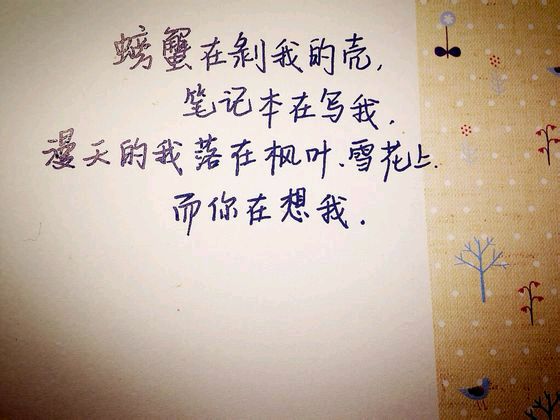 螃蟹在剥我的壳,
笔记本在写我.
漫天的我落在枫叶、雪花上.
而你在想我.